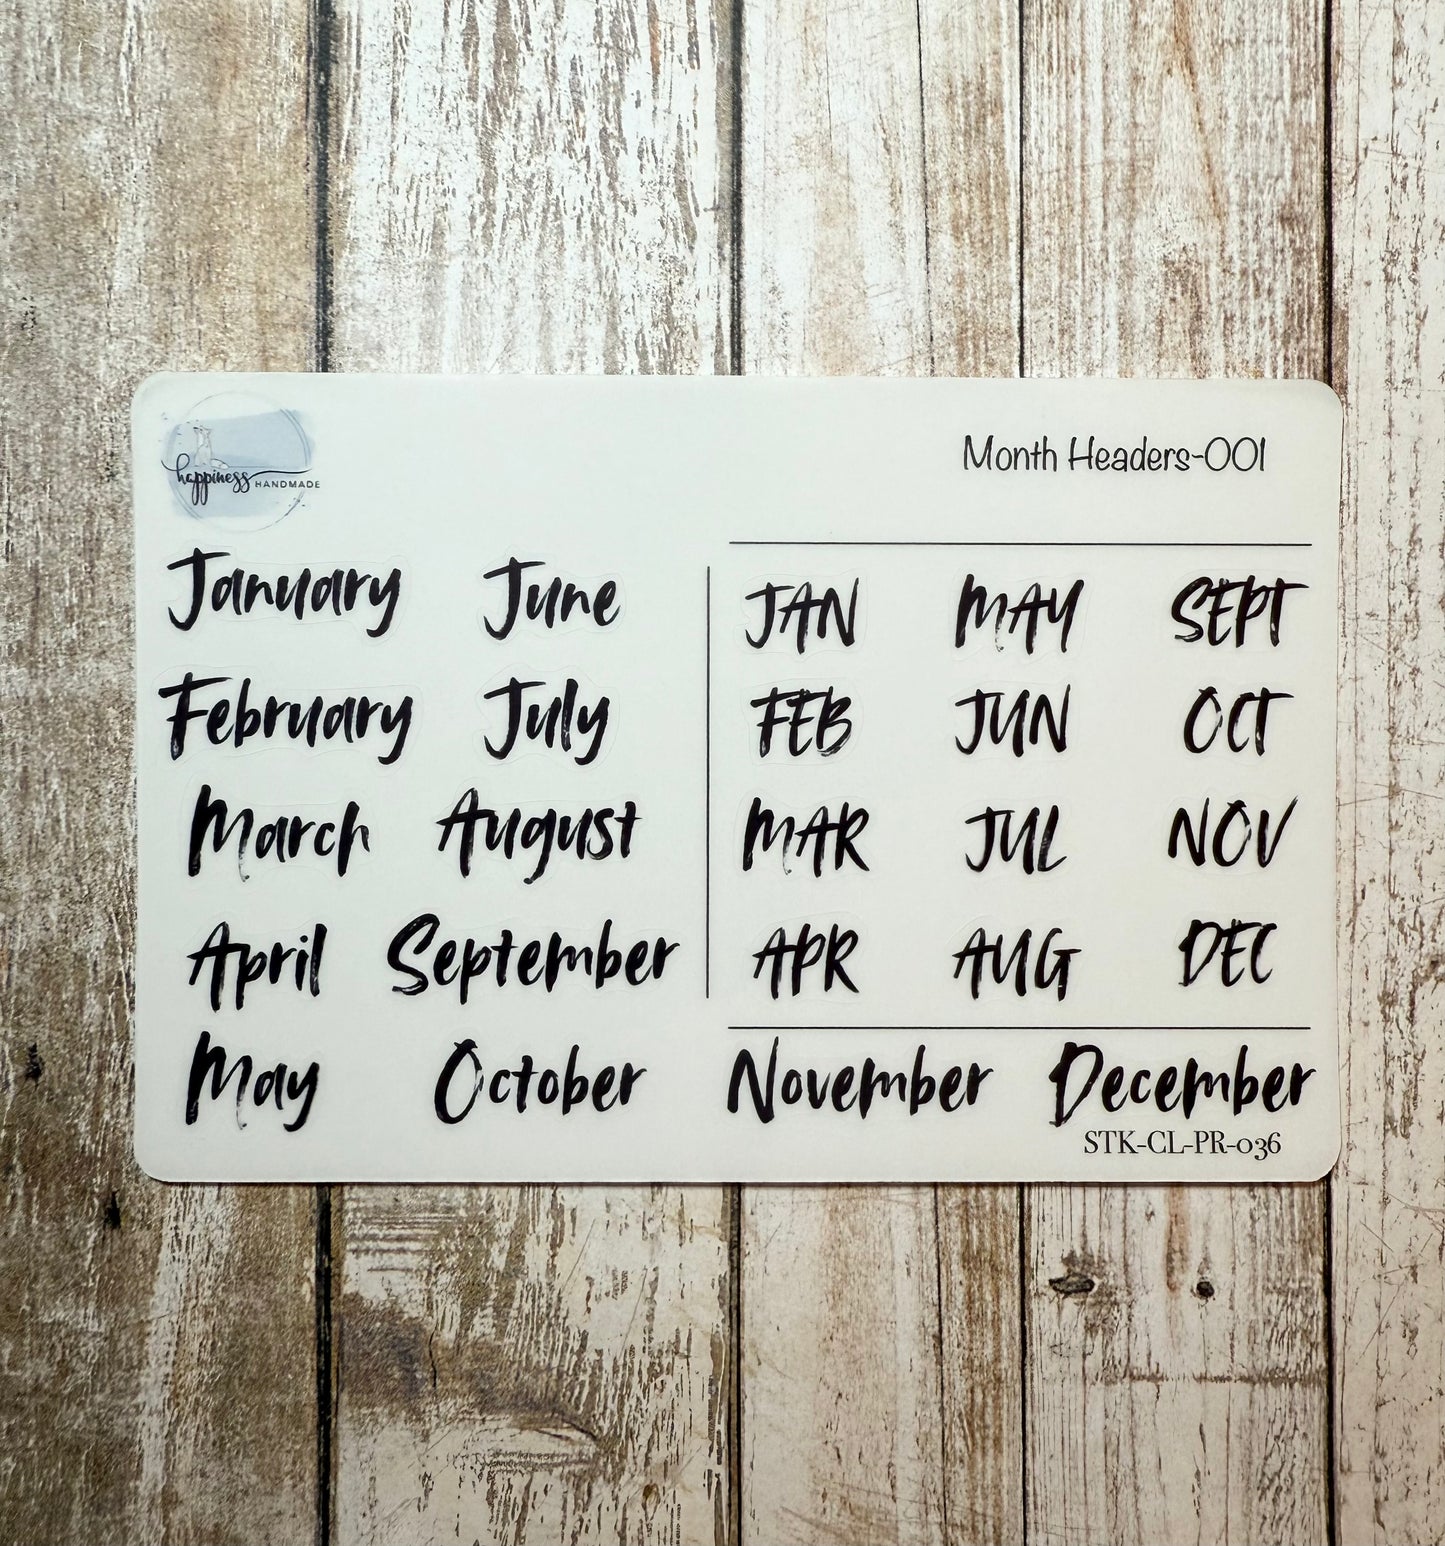 happiness HANDMADE
Month Headers-001
January June
February July
March August
April September
May October
JAN MAY SEPT
FEB JUN OCT
MAR JUL NOV
APR AUG DEC
November December
STK-CL-PR-036